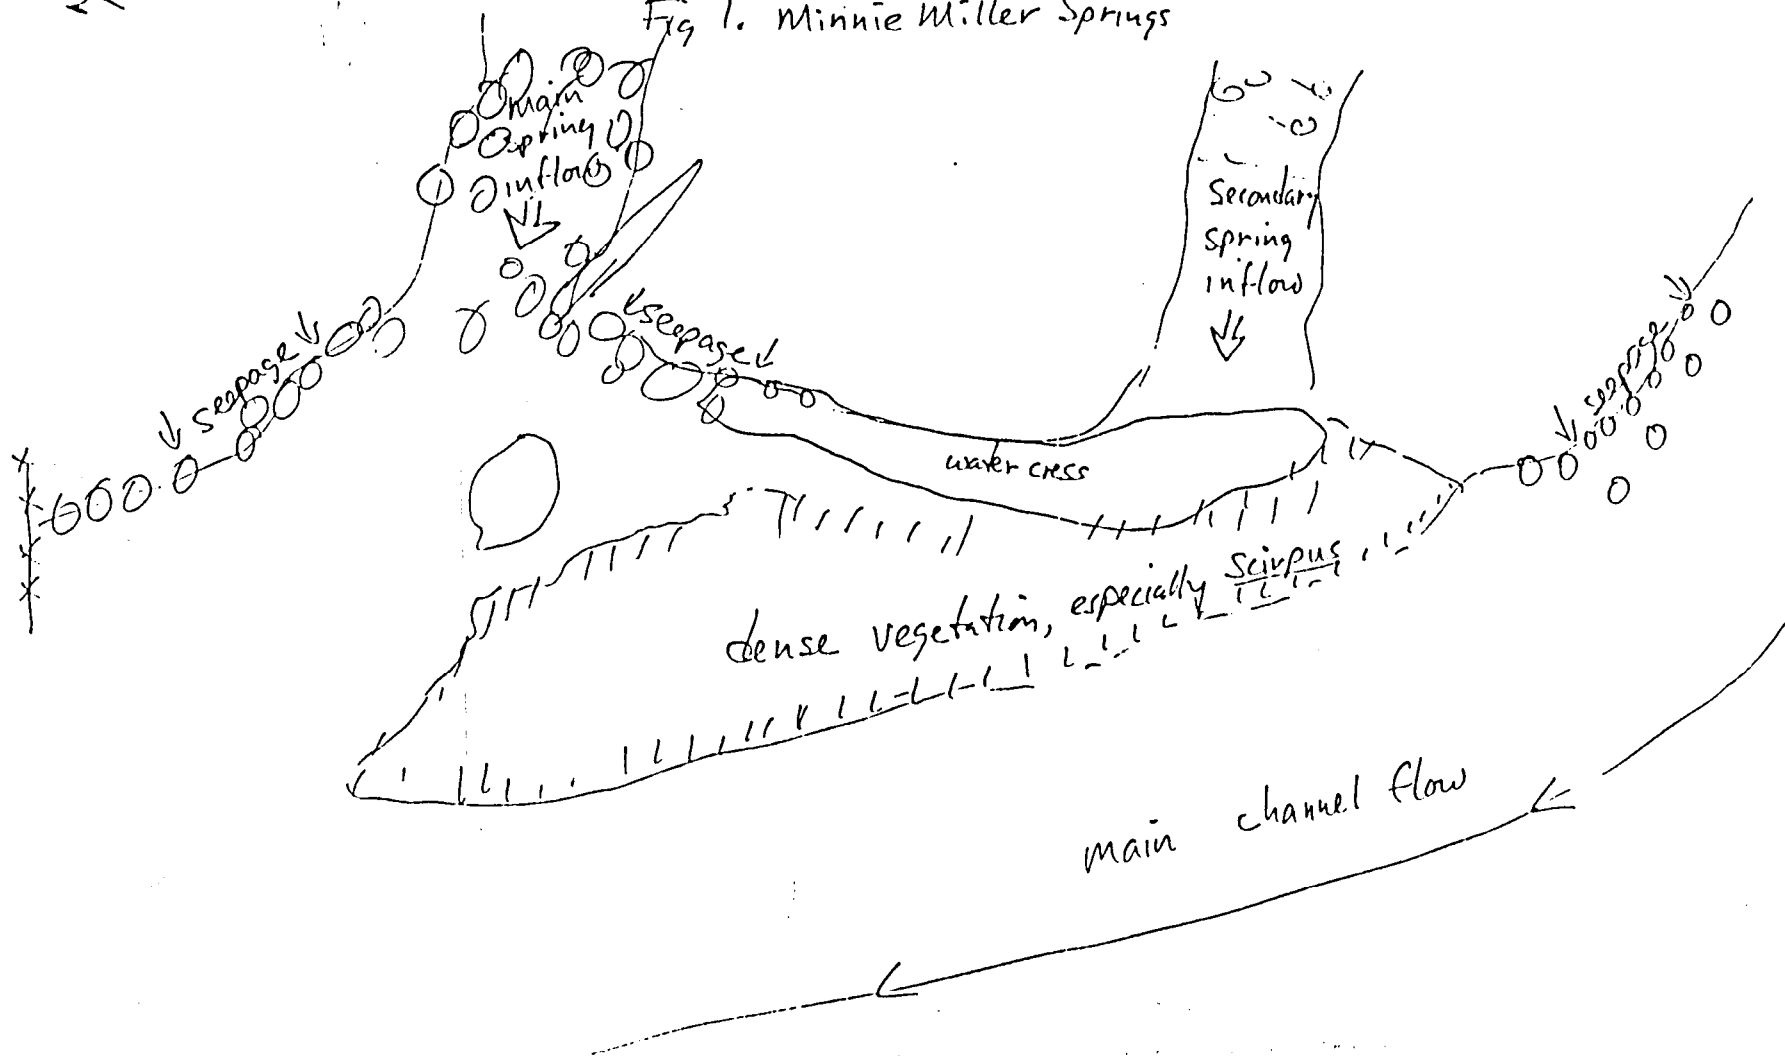 Fig 1. Minnie Miller Springs
main
spring
inflow
Secondary
spring
inflow
seepage
seepage
seepage
water cress
dense vegetation, especially Scirpus
main channel flow